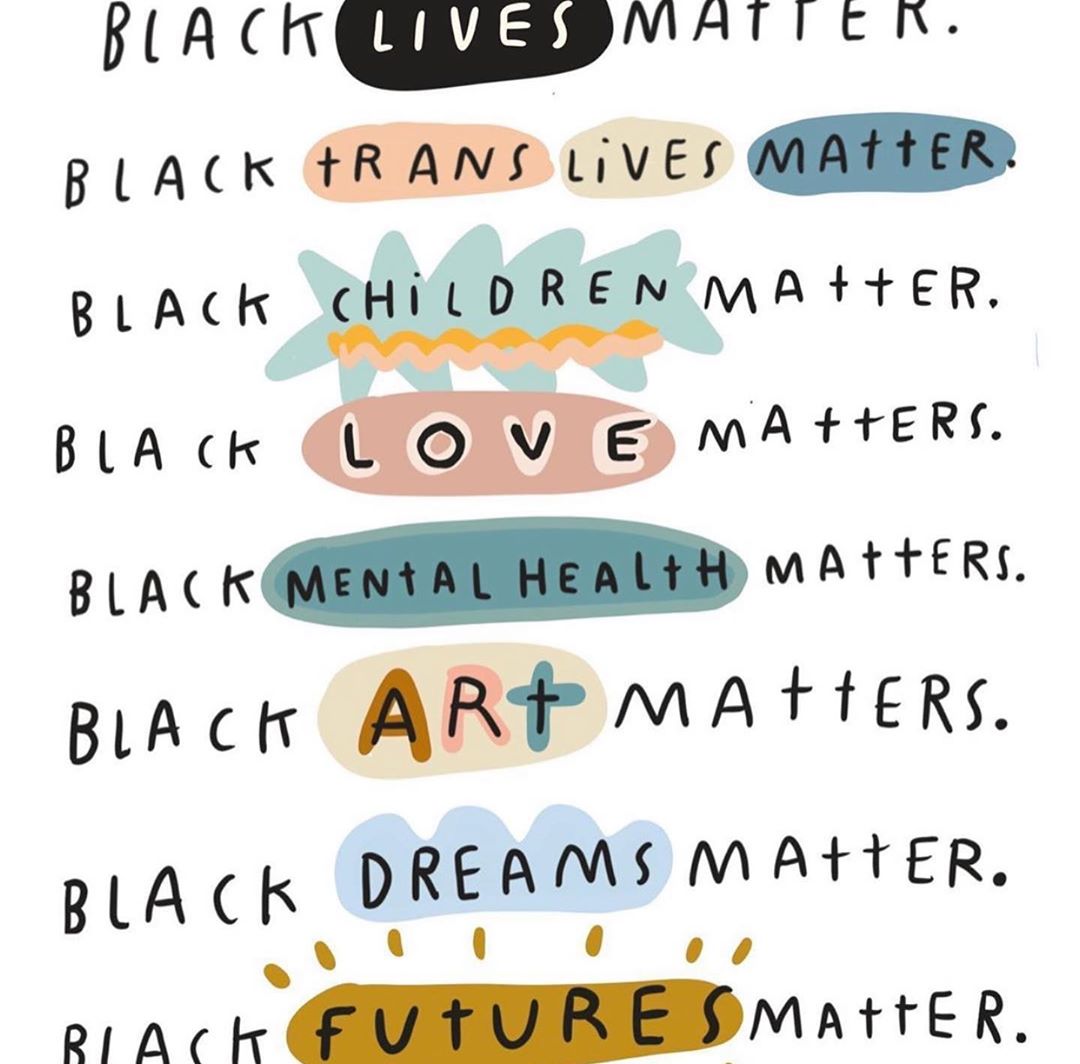 BLACK LIVES MATTER.
BLACK TRANS LIVES MATTER.
BLACK CHILDREN MATTER.
BLACK LOVE MATTERS.
BLACK MENTAL HEALTH MATTERS.
BLACK ART MATTERS.
BLACK DREAMS MATTER.
BLACK FUTURES MATTER.